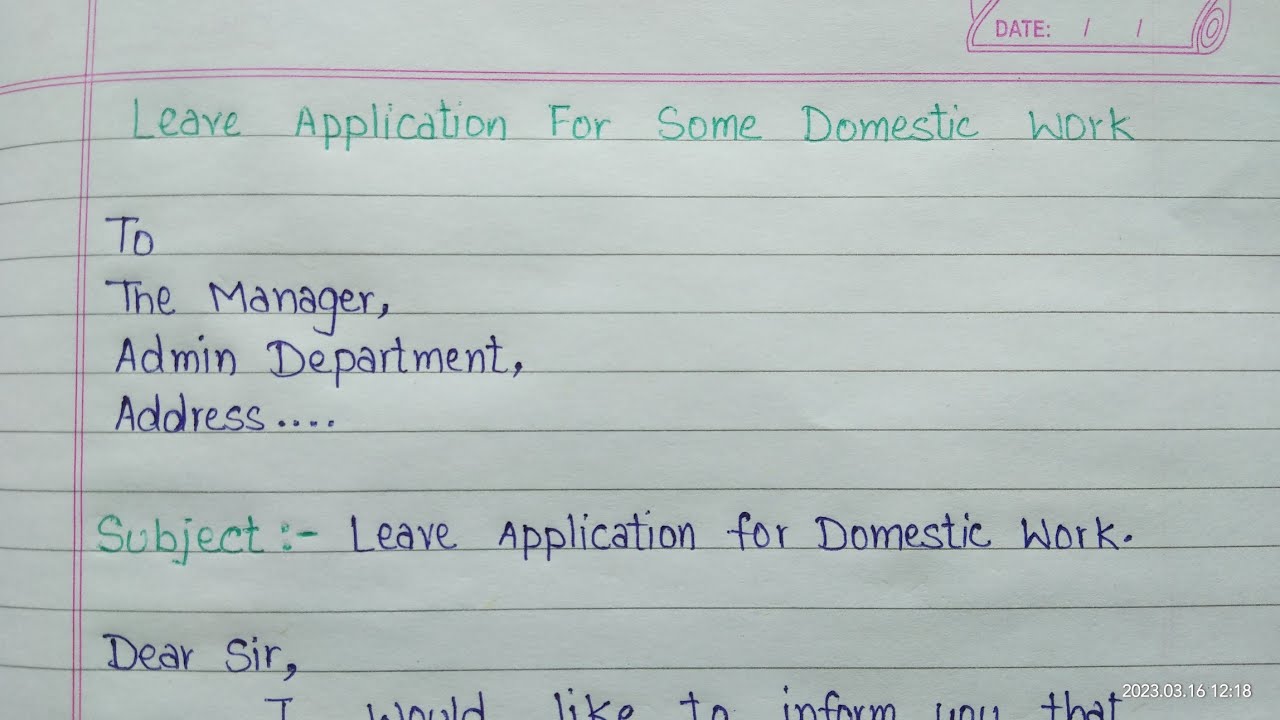 DATE: / /
Leave Application For Some Domestic Work
To
The Manager,
Admin Department,
Address....
Subject:- Leave Application for Domestic Work.
Dear Sir,
I would like to inform you that
2023.03.16 12:18